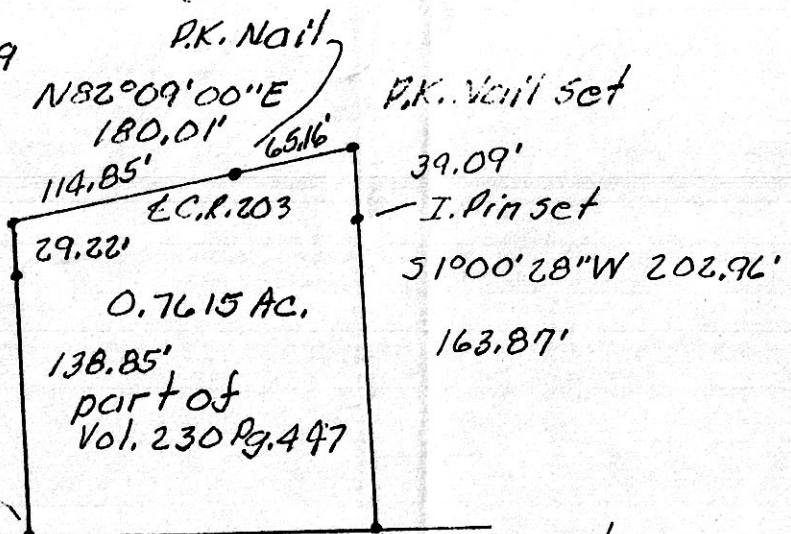 9
P.K. Nail
N82°09'00"E
180.01'
P.K. Nail set
65.16'
114.85'
39.09'
℄ C.R. 203
I. Pin set
29.22'
S1°00'28"W 202.96'
0.7615 Ac.
163.87'
138.85'
part of
Vol. 230 Pg. 447